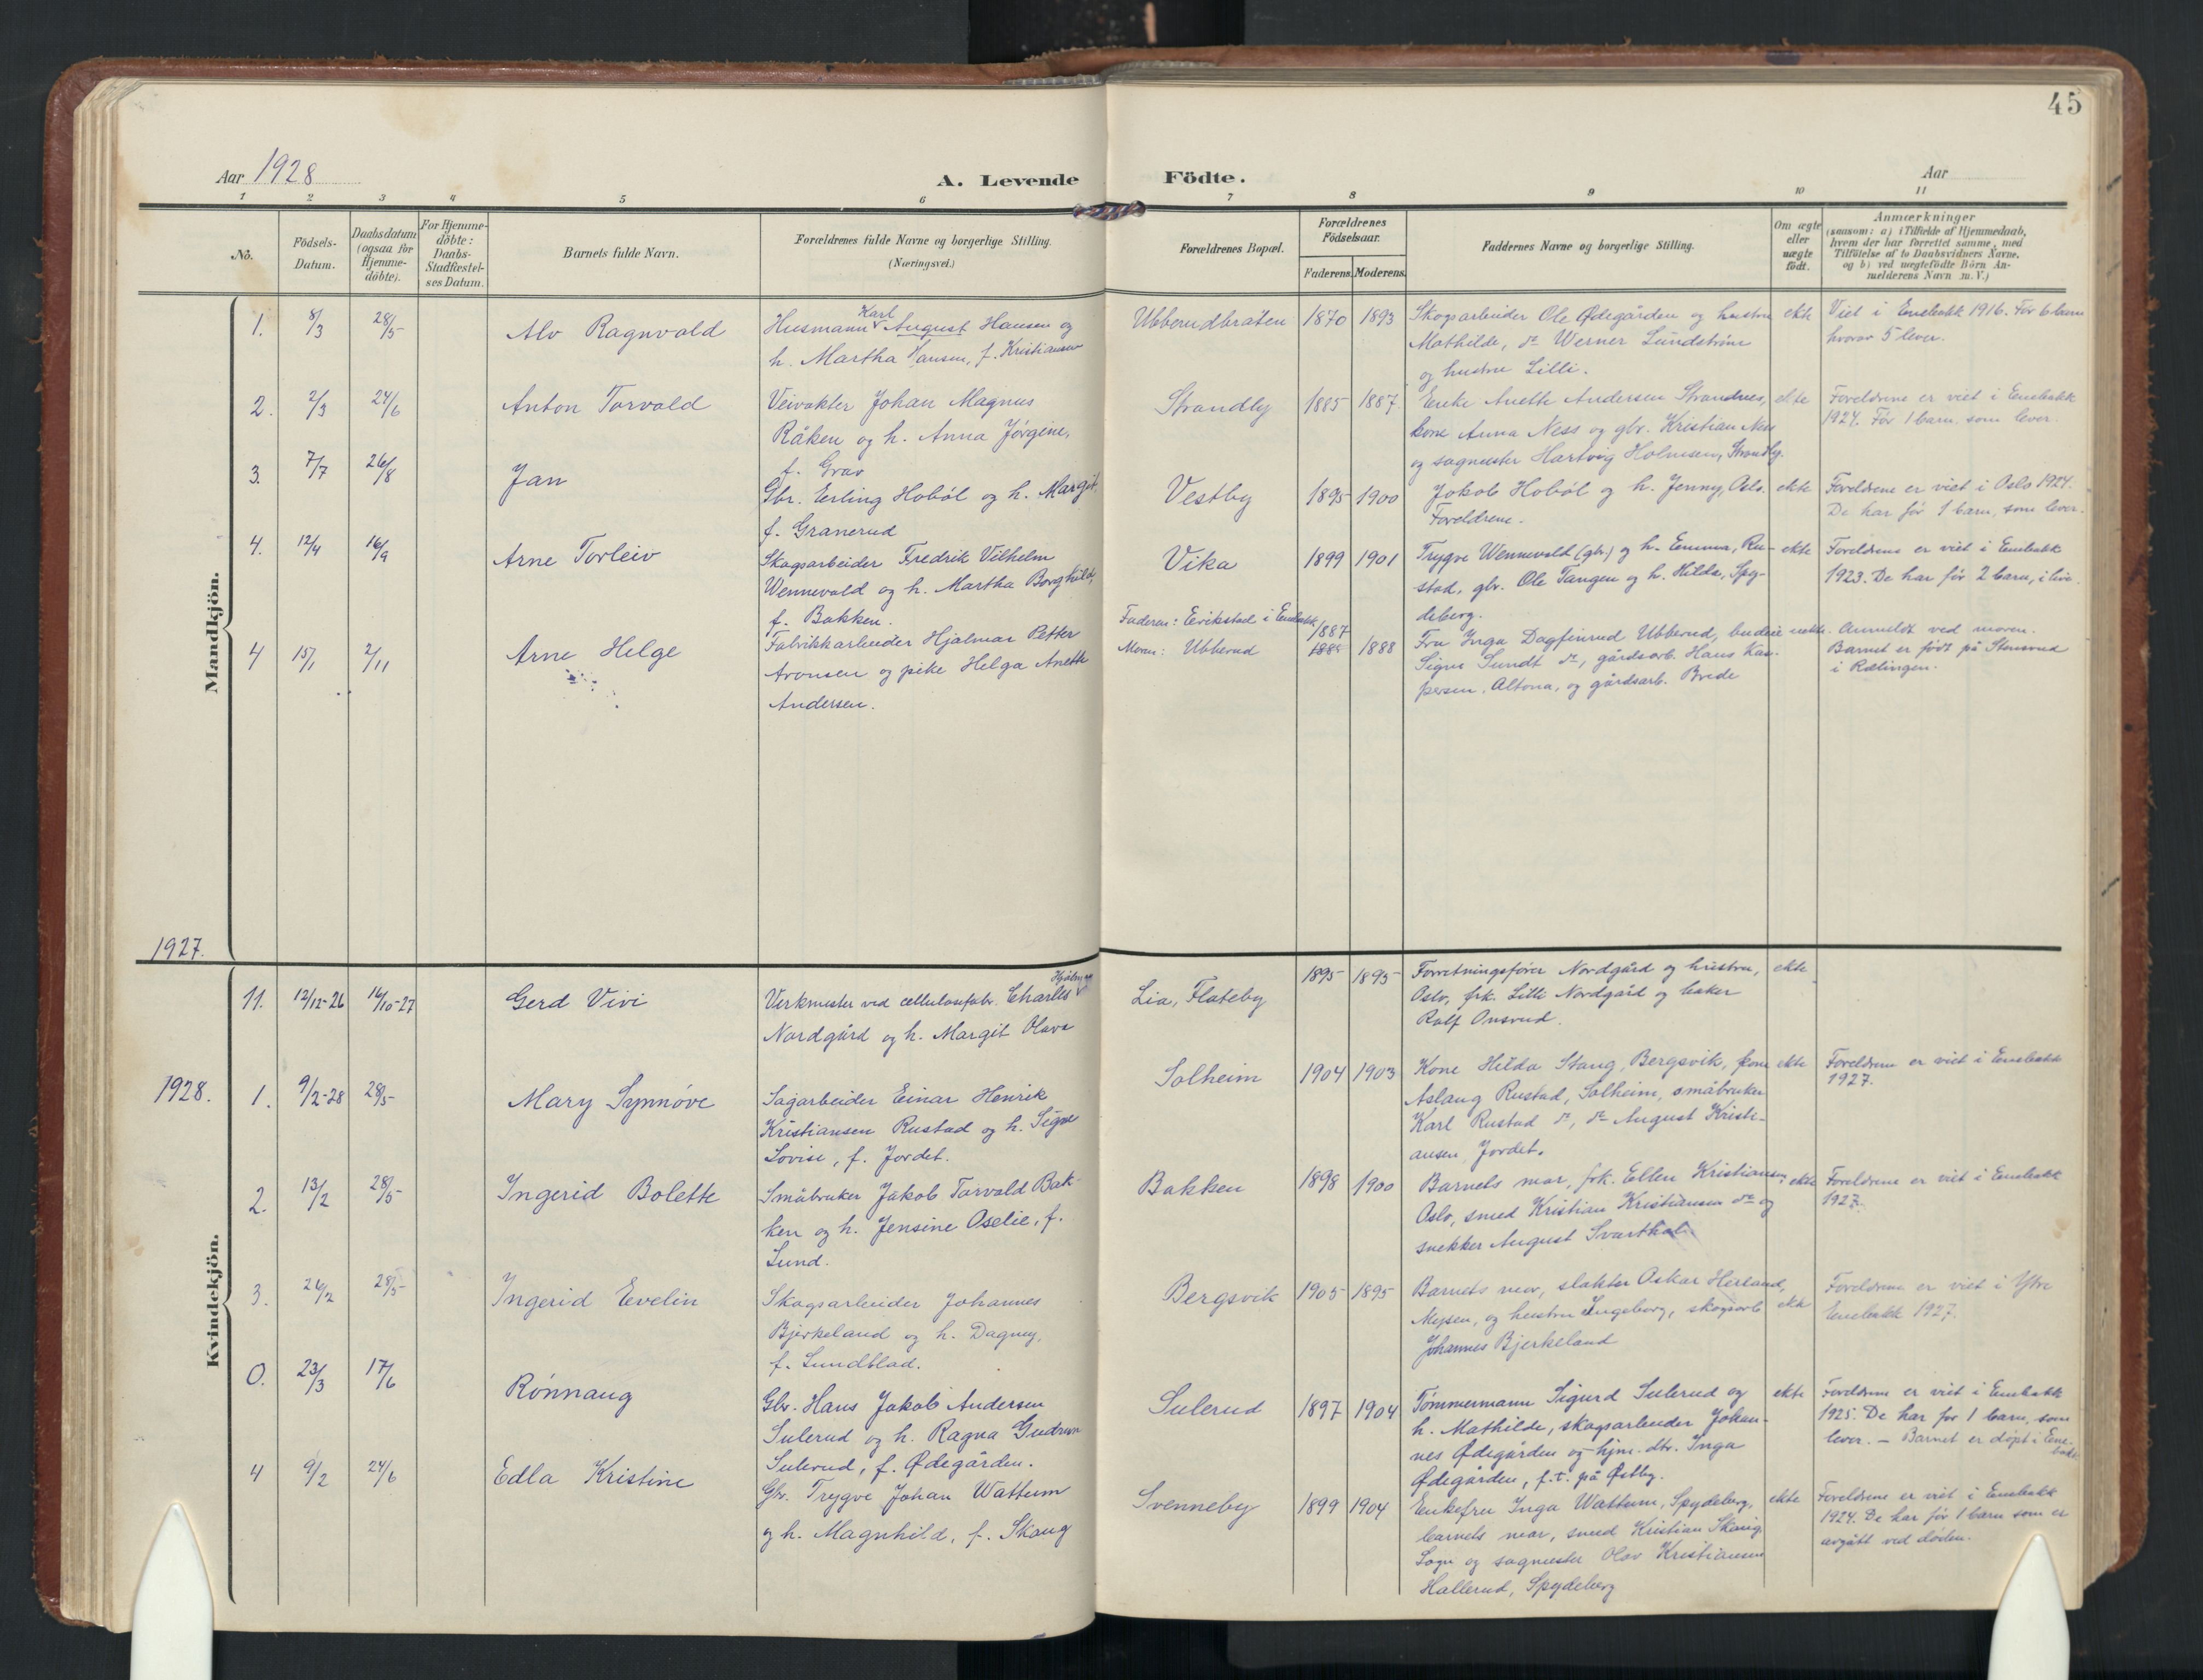 45
Aar 1928
A. Levende Födte.
Aar
1 2 3 4 5 6 7 8 9 10 11
No.
Födsels-
Datum.
Daabsdatum
(ogsaa for
Hjemme-
döbte).
For Hjemme-
döbte:
Daabs-
Stadfæstel-
ses Datum.
Barnets fulde Navn.
Forældrenes fulde Navne og borgerlige Stilling.
(Næringsvei.)
Forældrenes Bopæl.
Forældrenes
Födselsaar.
Faderens. Moderens.
Faddernes Navne og borgerlige Stilling.
Om ægte
eller
uægte
födt.
Anmærkninger
(saasom: a) i Tilfælde af Hjemmedaab,
hvem der har forrettet samme, med
Tilföielse af to Daabsvidners Navne,
og b) ved uægtefödte Börn An-
melderens Navn m. V.)
Mandkjön.
1. 8/3 28/5 Alv Ragnvald
Karl
Husmann August Hansen og
h. Martha Hansen, f. Kristiansen
Ubberudbråten 1870 1893
Skogsarbeider Ole Ødegården og hustru
Mathilde, do Werner Lundström
og hustru Lilli.
ekte
Viet i Enebakk 1916. Før 6 barn
hvorav 5 lever.
2. 2/3 24/6 Anton Torvald
Veivokter Johan Magnus
Råken og h. Anna Jörgine,
f. Grav
Strandly 1885 1887
Enke Anette Andersen Strandnes,
kone Anna Ness og gbr. Kristian Ness
og sagmester Hartvig Holmsen, Strandly.
ekte
Foreldrene er viet i Enebakk
1924. Før 1 barn som lever.
3. 7/7 26/8 Jan
Gbr. Erling Hoböl og h. Margit,
f. Granerud
Vestby 1895 1900
Jakob Hoböl og h. Jenny, Oslo.
Foreldrene.
ekte
Foreldrene er viet i Oslo 1924.
De har før 1 barn, som lever.
4. 12/4 16/9 Arne Torleiv
Skogsarbeider Fredrik Vilhelm
Wennevold og h. Martha Borghild,
f. Bakken.
Vika 1899 1901
Trygve Wennevold (gbr.) og h. Emma, Ru-
stad, gbr. Ole Tangen og h. Hilda, Spy-
deberg.
ekte
Foreldrene er viet i Enebakk
1923. De har før 2 barn, i live.
4 15/1 2/11 Arne Helge
Fabrikkarbeider Hjalmar Petter
Aronsen og pike Helga Anette
Andersen.
Faderen: Eirikstad i Enebakk
Moren: Ubberud
1887
1888
Fru Inga Dagfinrud Ubberud, budeie
Signe Sundt do, gårdsarb. Hans Kas-
persen, Altona, og gårdsarb. Brede
uekte.
Anmeldt ved moren.
Barnet er född på Stensrud
i Rælingen.
1927.
Kvindekjön.
11. 12/12-26 16/10-27 Gerd Vivi
Hjalmar
Verkmester ved cellulosefabr. Charles
Nordgård og h. Margit Olava
Lia, Flateby 1895 1895
Forretningsfører Nordgård og hustru,
Oslo, frk. Lilli Nordgård og baker
Ralf Onsrud.
ekte
1928.
1. 9/2-28 28/5 Mary Synnöve
Sagarbeider Einar Henrik
Kristiansen Rustad og h. Signe
Lovise, f. Jordet.
Solheim 1904 1903
Kone Hilda Stang, Bergsvik, kone
Aslaug Rustad, Solheim, småbruker
Karl Rustad do, do August Kristi-
ansen, Jordet.
ekte
Foreldrene er viet i Enebakk
1927.
2. 13/2 28/5 Ingerid Bolette
Småbruker Jakob Torvald Bak-
ken og h. Jensine Oselie, f.
Lund.
Bakken 1898 1900
Barnets mor, frk. Ellen Kristiansen,
Oslo, smed Kristian Kristiansen do og
snekker August Svarthol
ekte
Foreldrene er viet i Enebakk
1927.
3. 24/2 28/5 Ingerid Evelin
Skogsarbeider Johannes
Bjerkeland og h. Dagny,
f. Lundblad.
Bergsvik 1905 1895
Barnets mor, slakter Oskar Herland,
Mysen, og hustru Ingeborg, skogsarb.
Johannes Bjerkeland
ekte
Foreldrene er viet i Ytre
Enebakk 1927.
0. 23/3 17/6 Rönnaug
Gbr. Hans Jakob Andersen
Sulerud og h. Ragna Gudrun
Sulerud, f. Ødegården.
Sulerud 1897 1904
Tømmermann Sigurd Sulerud og
h. Mathilde, skogsarbeider Johan-
nes Ødegården og hjm. dtr. Inga
Ødegården, f.t. på Østby.
ekte
Foreldrene er viet i Enebakk
1925. De har før 1 barn, som
lever. – Barnet er döpt i Ene-
bakk.
4 9/2 24/6 Edla Kristine
Gbr. Trygve Johan Wattum
og h. Magnhild, f. Skaug
Svenneby 1899 1904
Enkefru Inga Wattum, Spydeberg,
barnets mor, smed Kristian Skaug
Sogn og sagmester Olav Kristiansen
Hallerud, Spydeberg
ekte
Foreldrene er viet i Enebakk
1924. De har før 1 barn som er
avgått ved døden.